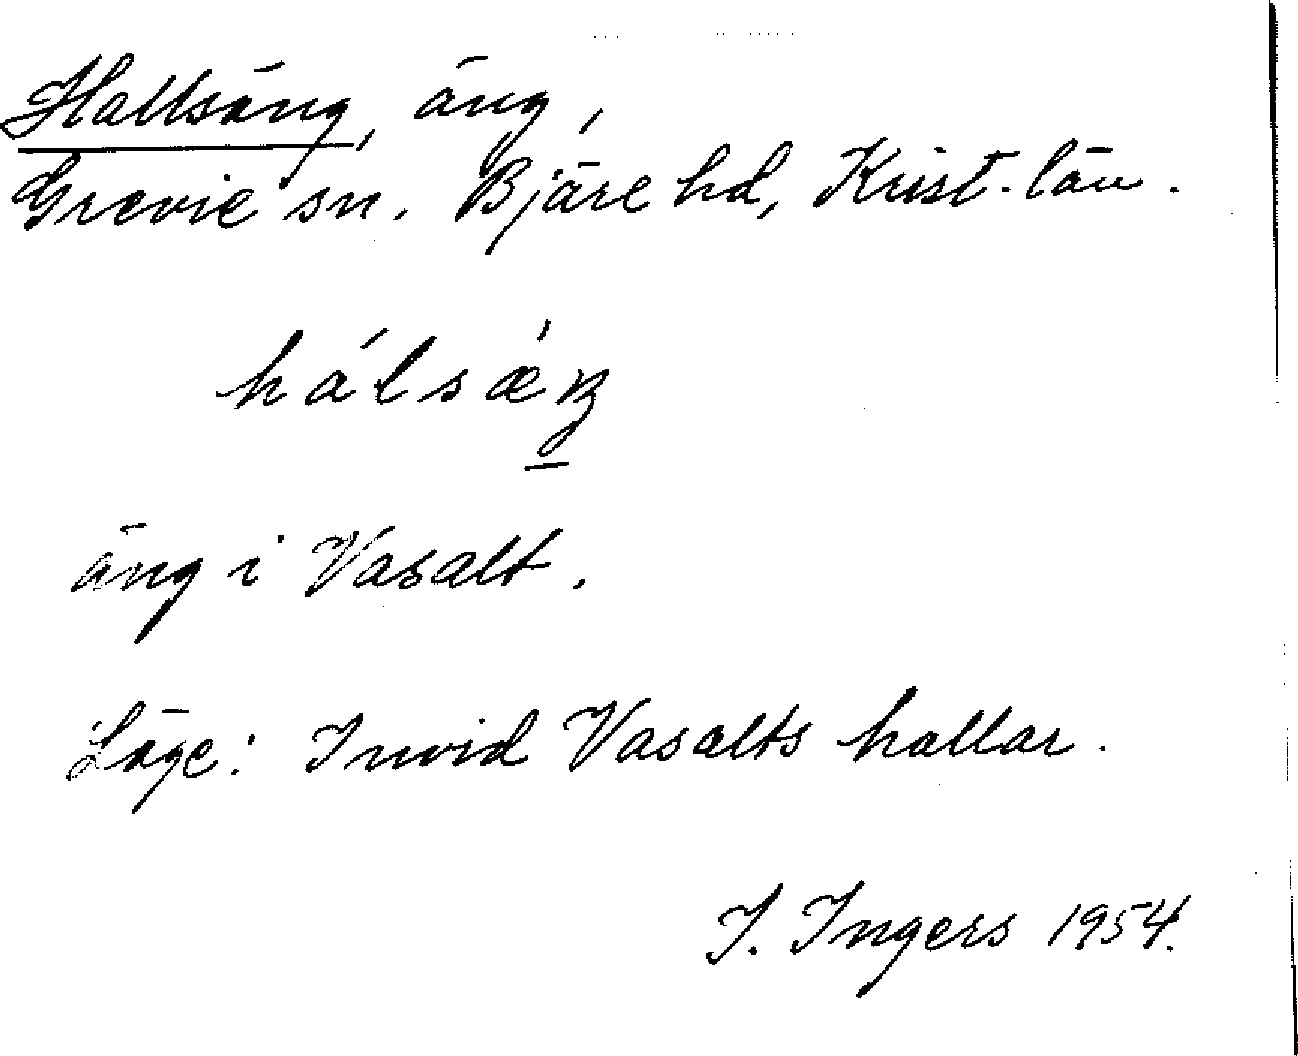 Hallsäng, äng,
Grevie sn. Bjäre hd, Krist. län.
hálsǽŋ
äng i Vasalt.
Läge: Invid Vasalts hallar.
I. Ingers 1954.